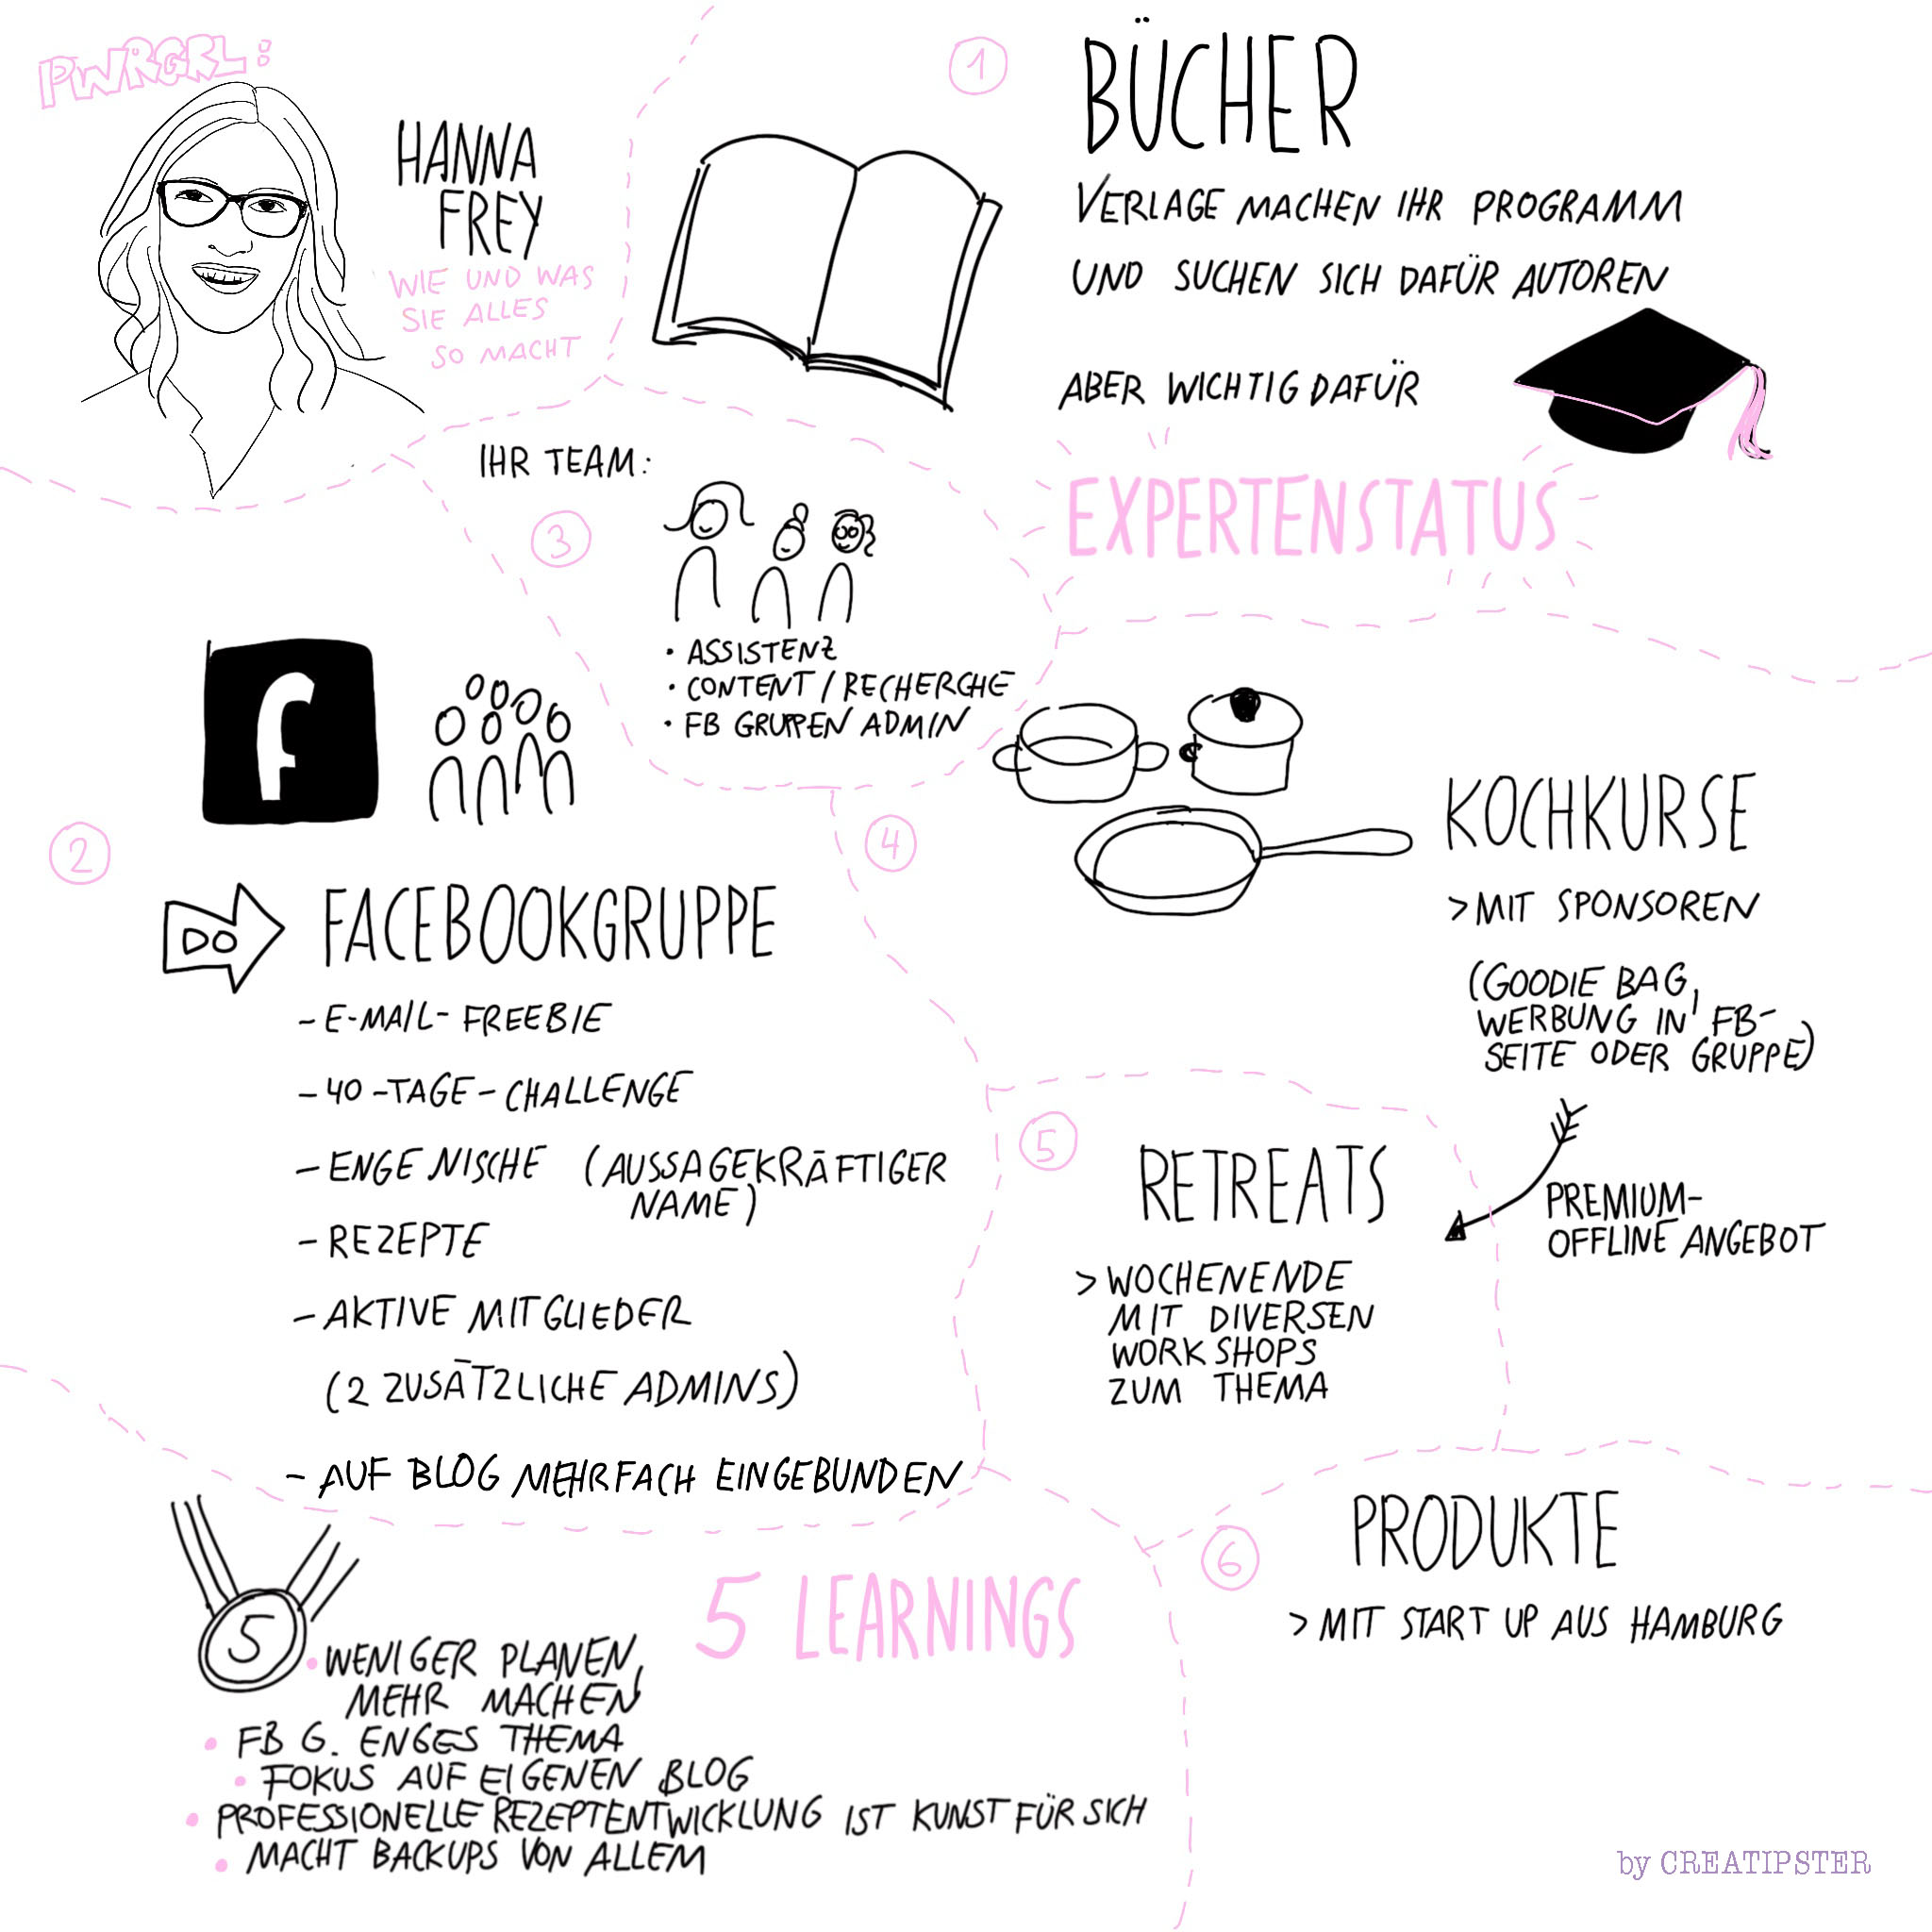 PWRGRL:
HANNA
FREY
WIE UND WAS
SIE ALLES
SO MACHT
1
BÜCHER
VERLAGE MACHEN IHR PROGRAMM
UND SUCHEN SICH DAFÜR AUTOREN
ABER WICHTIG DAFÜR
EXPERTENSTATUS
2
f
DO
FACEBOOKGRUPPE
- E-MAIL-FREEBIE
- 40-TAGE-CHALLENGE
- ENGE NISCHE (AUSSAGEKRÄFTIGER
NAME)
- REZEPTE
- AKTIVE MITGLIEDER
(2 ZUSÄTZLICHE ADMINS)
- AUF BLOG MEHRFACH EINGEBUNDEN
3
IHR TEAM:
• ASSISTENZ
• CONTENT / RECHERCHE
• FB GRUPPEN ADMIN
4
KOCHKURSE
> MIT SPONSOREN
(GOODIE BAG,
WERBUNG IN FB-
SEITE ODER GRUPPE)
5
RETREATS
> WOCHENENDE
MIT DIVERSEN
WORKSHOPS
ZUM THEMA
PREMIUM-
OFFLINE ANGEBOT
6
PRODUKTE
> MIT START UP AUS HAMBURG
5
5 LEARNINGS
• WENIGER PLANEN,
MEHR MACHEN
• FB G. ENGES THEMA
• FOKUS AUF EIGENEN BLOG
• PROFESSIONELLE REZEPTENTWICKLUNG IST KUNST FÜR SICH
• MACHT BACKUPS VON ALLEM
by CREATIPSTER